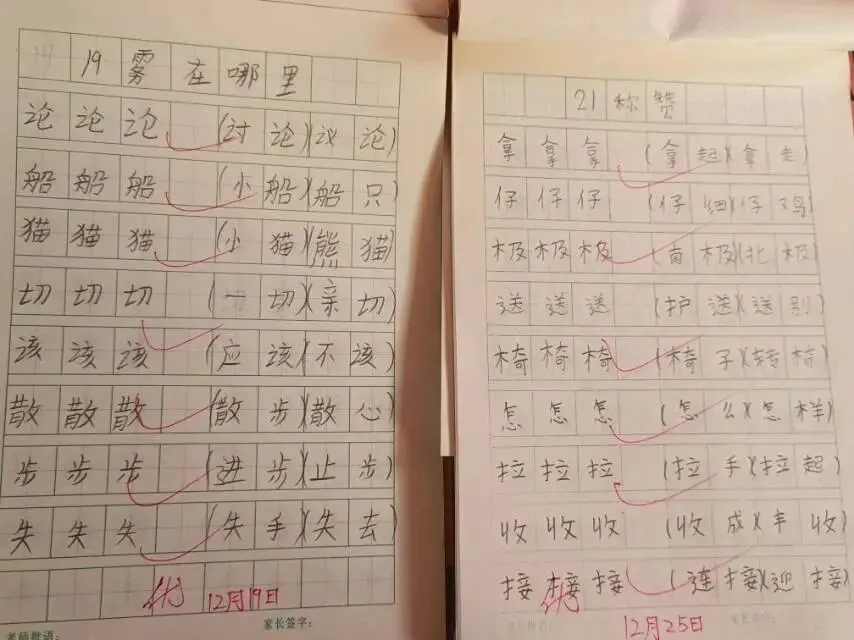 19 雾在哪里
论 论 论 (讨论)(议论)
船 船 船 (小船)(船只)
猫 猫 猫 (小猫)(熊猫)
切 切 切 (一切)(亲切)
该 该 该 (应该)(不该)
散 散 散 (散步)(散心)
步 步 步 (进步)(止步)
失 失 失 (失手)(失去)
优 12月19日
老师批语: 家长签字:
21 称赞
拿 拿 拿 (拿起)(拿走)
仔 仔 仔 (仔细)(仔鸡)
极 极 极 (南极)(北极)
送 送 送 (护送)(送别)
椅 椅 椅 (椅子)(转椅)
怎 怎 怎 (怎么)(怎样)
拉 拉 拉 (拉手)(拉起)
收 收 收 (收成)(丰收)
接 接 接 (连接)(迎接)
优 12月25日